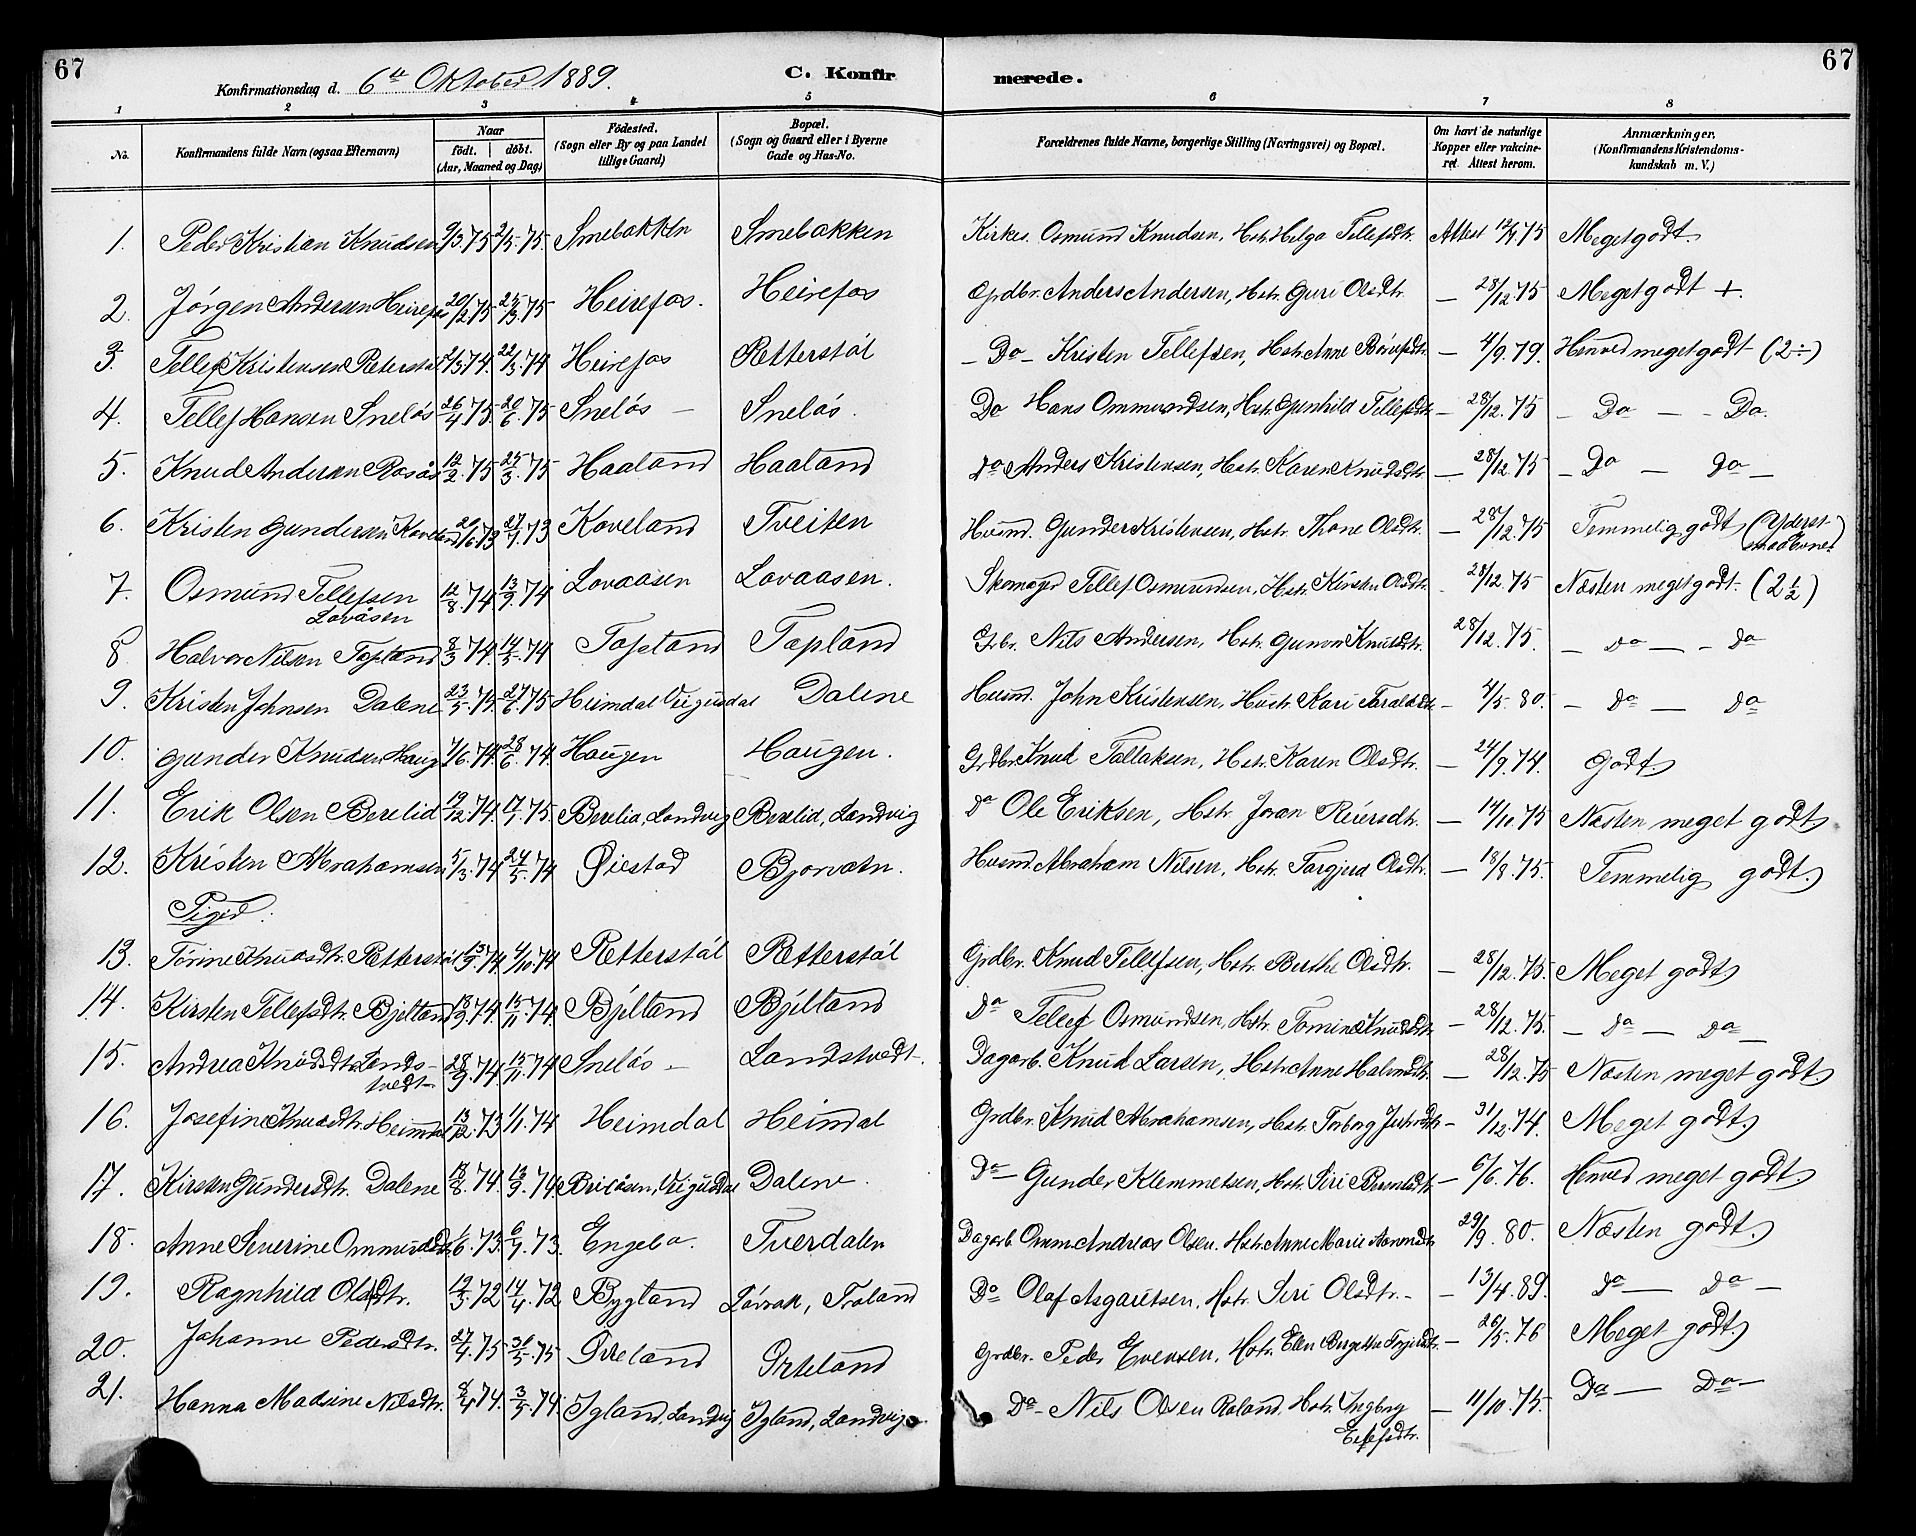 67 67
Konfirmationsdag d. 6te Oktober 1889. C. Konfirmerede.
1 2 3 4 5 6 7 8
No. Konfirmandens fulde Navn (ogsaa Efternavn) Naar født. døbt. (Aar, Maaned og Dag) Fødested. (Sogn eller By og paa Landet tillige Gaard) Bopæl. (Sogn og Gaard eller i Byerne Gade og Hus-No. Forældrenes fulde Navne, borgerlige Stilling (Næringsvei) og Bopæl. Om havt de naturlige Kopper eller vaccineret Attest herom. Anmærkninger. (Konfirmandens Kristendomskundskab m. V.)
1. Peder Kristian Knudsen 9/3.75 2/5.75 Smebakken Smebakken Kirkes. Osmund Knudsen, Hstr. Helga Tellefsdtr. Attest 12/9 75 Meget godt.
2. Jørgen Andersen Heirefos 20/2.75 25/3.75 Heirefos. Heirefos Grdbr. Anders Andersen, Hstr. Guri Olsdtr. — 28/12.75 Meget godt +.
3. Tellef Kristensen Retterstøl 2/3.74. 22/3.74 Heirefos Retterstøl — Do — Kristen Tellefsen, Hstr. Anne — 4/9.79. Henved meget godt (2÷)
4. Tellef Hansen Sneløs 26/4.75. 20/6.75 Sneløs — Sneløs. Do Hans Ommundsen, Hstr. Gunhild Tellefsdtr. — 28/12.75 — Do — - Do.
5. Knud Andersen Rosås 12/2.75 25/3.75 Haaland Haaland Do Anders Kristensen, Hstr. Karen Knudsdtr. — 28/12.75 — Do — Do —
6. Kristen Gundersen Koveland 20/6.73 27/7.73 Koveland Tveiten Husmd. Gunder Kristensen, Hstr. Thone Olsdtr. — 28/12.75 Temmelig godt (Yderst smaa Evner)
7. Osmund Tellefsen Lovåsen 12/8.74 13/9.74 Lovaasen Lovaasen. Skomager Tellef Osmundsen, Hstr. Kirsten Olsdtr. 28/12.75 Næsten meget godt (2½)
8. Halvor Nilsen Topland 8/3.74. 14/5.74 Topland Topland Grbr. Nils Andersen, Hstr. Gunvor Knutsdtr. 28/12.75. — do — - do
9. Kristen Johnsen Dalene 23/5.74. 27/6.75 Heimdal Vigusdal Dalene Husmd. John Kristensen, Hustr. Kari Taraldsdtr — 4/5.80. — do — do
10. Gunder Knudsen Haug 7/6.74. 28/6.74 Haugen Haugen. Grdbr. Knud Tallaksen, Hstr. Karen Olsdtr. — 24/9.74. Godt.
11. Erik Olsen Berelid 19/12.74. 17/1.75. Berelid, Landvig Berelid, Landvig do Ole Eriksen, Hstr. Joran Reiersdtr. — 14/11.75 Næsten meget godt.
12. Kristen Abrahamsen 5/3.74 24/5.74 Øiestad Bjorvatn. Husmd. Abraham Nilsen, Hstr. Torgjerd Olsdtr. — 18/8.75. Temmelig godt.
Piger:
13. Tørine Knudsdtr. Retterstøl 13/9.74 4/10.74 Retterstøl Retterstøl Grdbr. Knud Tellefsen, Hstr. Berthe Olsdtr. — 28/12.75. Meget godt
14. Kirsten Tellefsdtr. Bjelland 18/9.74. 15/11.74. Bjelland Bjelland do Tellef Osmundsen, Hstr. Tomine Knudsdtr — 28/12.75. — do — do —
15. Andrea Knudsdtr. Landstvedt 28/9.74 15/11.74 Sneløs — Landstvedt. Dagarb. Knud Larsen, Hstr. Anne Halvorsdtr. — 28/12.75 Næsten meget godt.
16. Josefine Knudsdtr. Heimdal 13/12.73 1/11.74 Heimdal Heimdal Grdbr. Knud Abrahamsen, Hstr. Torborg — 31/12.74. Meget godt.
17. Kirsten Gundersdtr. Dalene 18/8.74. 13/9.74 Vigusdal Dalene. Do — Gunder Klemmetsen, Hstr. Siri — 6/6.76. Henved meget godt.
18. Anne Severine Ommundsdtr 1/6.73. 6/7.73. Engebo. Tverdalen Dagarb. Omm Andreas Olsen. Hstr. Anne Marie 29/9.80. Næsten godt.
19. Ragnhild Olsdtr. 12/3.72 14/4.72 Bygland Løvrak, Froland Do Olaf Asgaritsen, Hstr. Siri Olsdtr. — — 13/4.89. do — do —
20. Johanne Pedersdtr. 27/4.75 31/5.75 Birkeland Grdbr. Peder Evensen, Hstr. Elen Bergette — 26/5.76 Meget godt.
21. Hanna Madsine Nilsdtr. 8/4.74. 3/5.74. Igland, Landvig Igland, Landvig. Do — Nils Olsen Roland, Hstr. Ingborg Eilefsdtr. — 11/10.75. Do — Do —